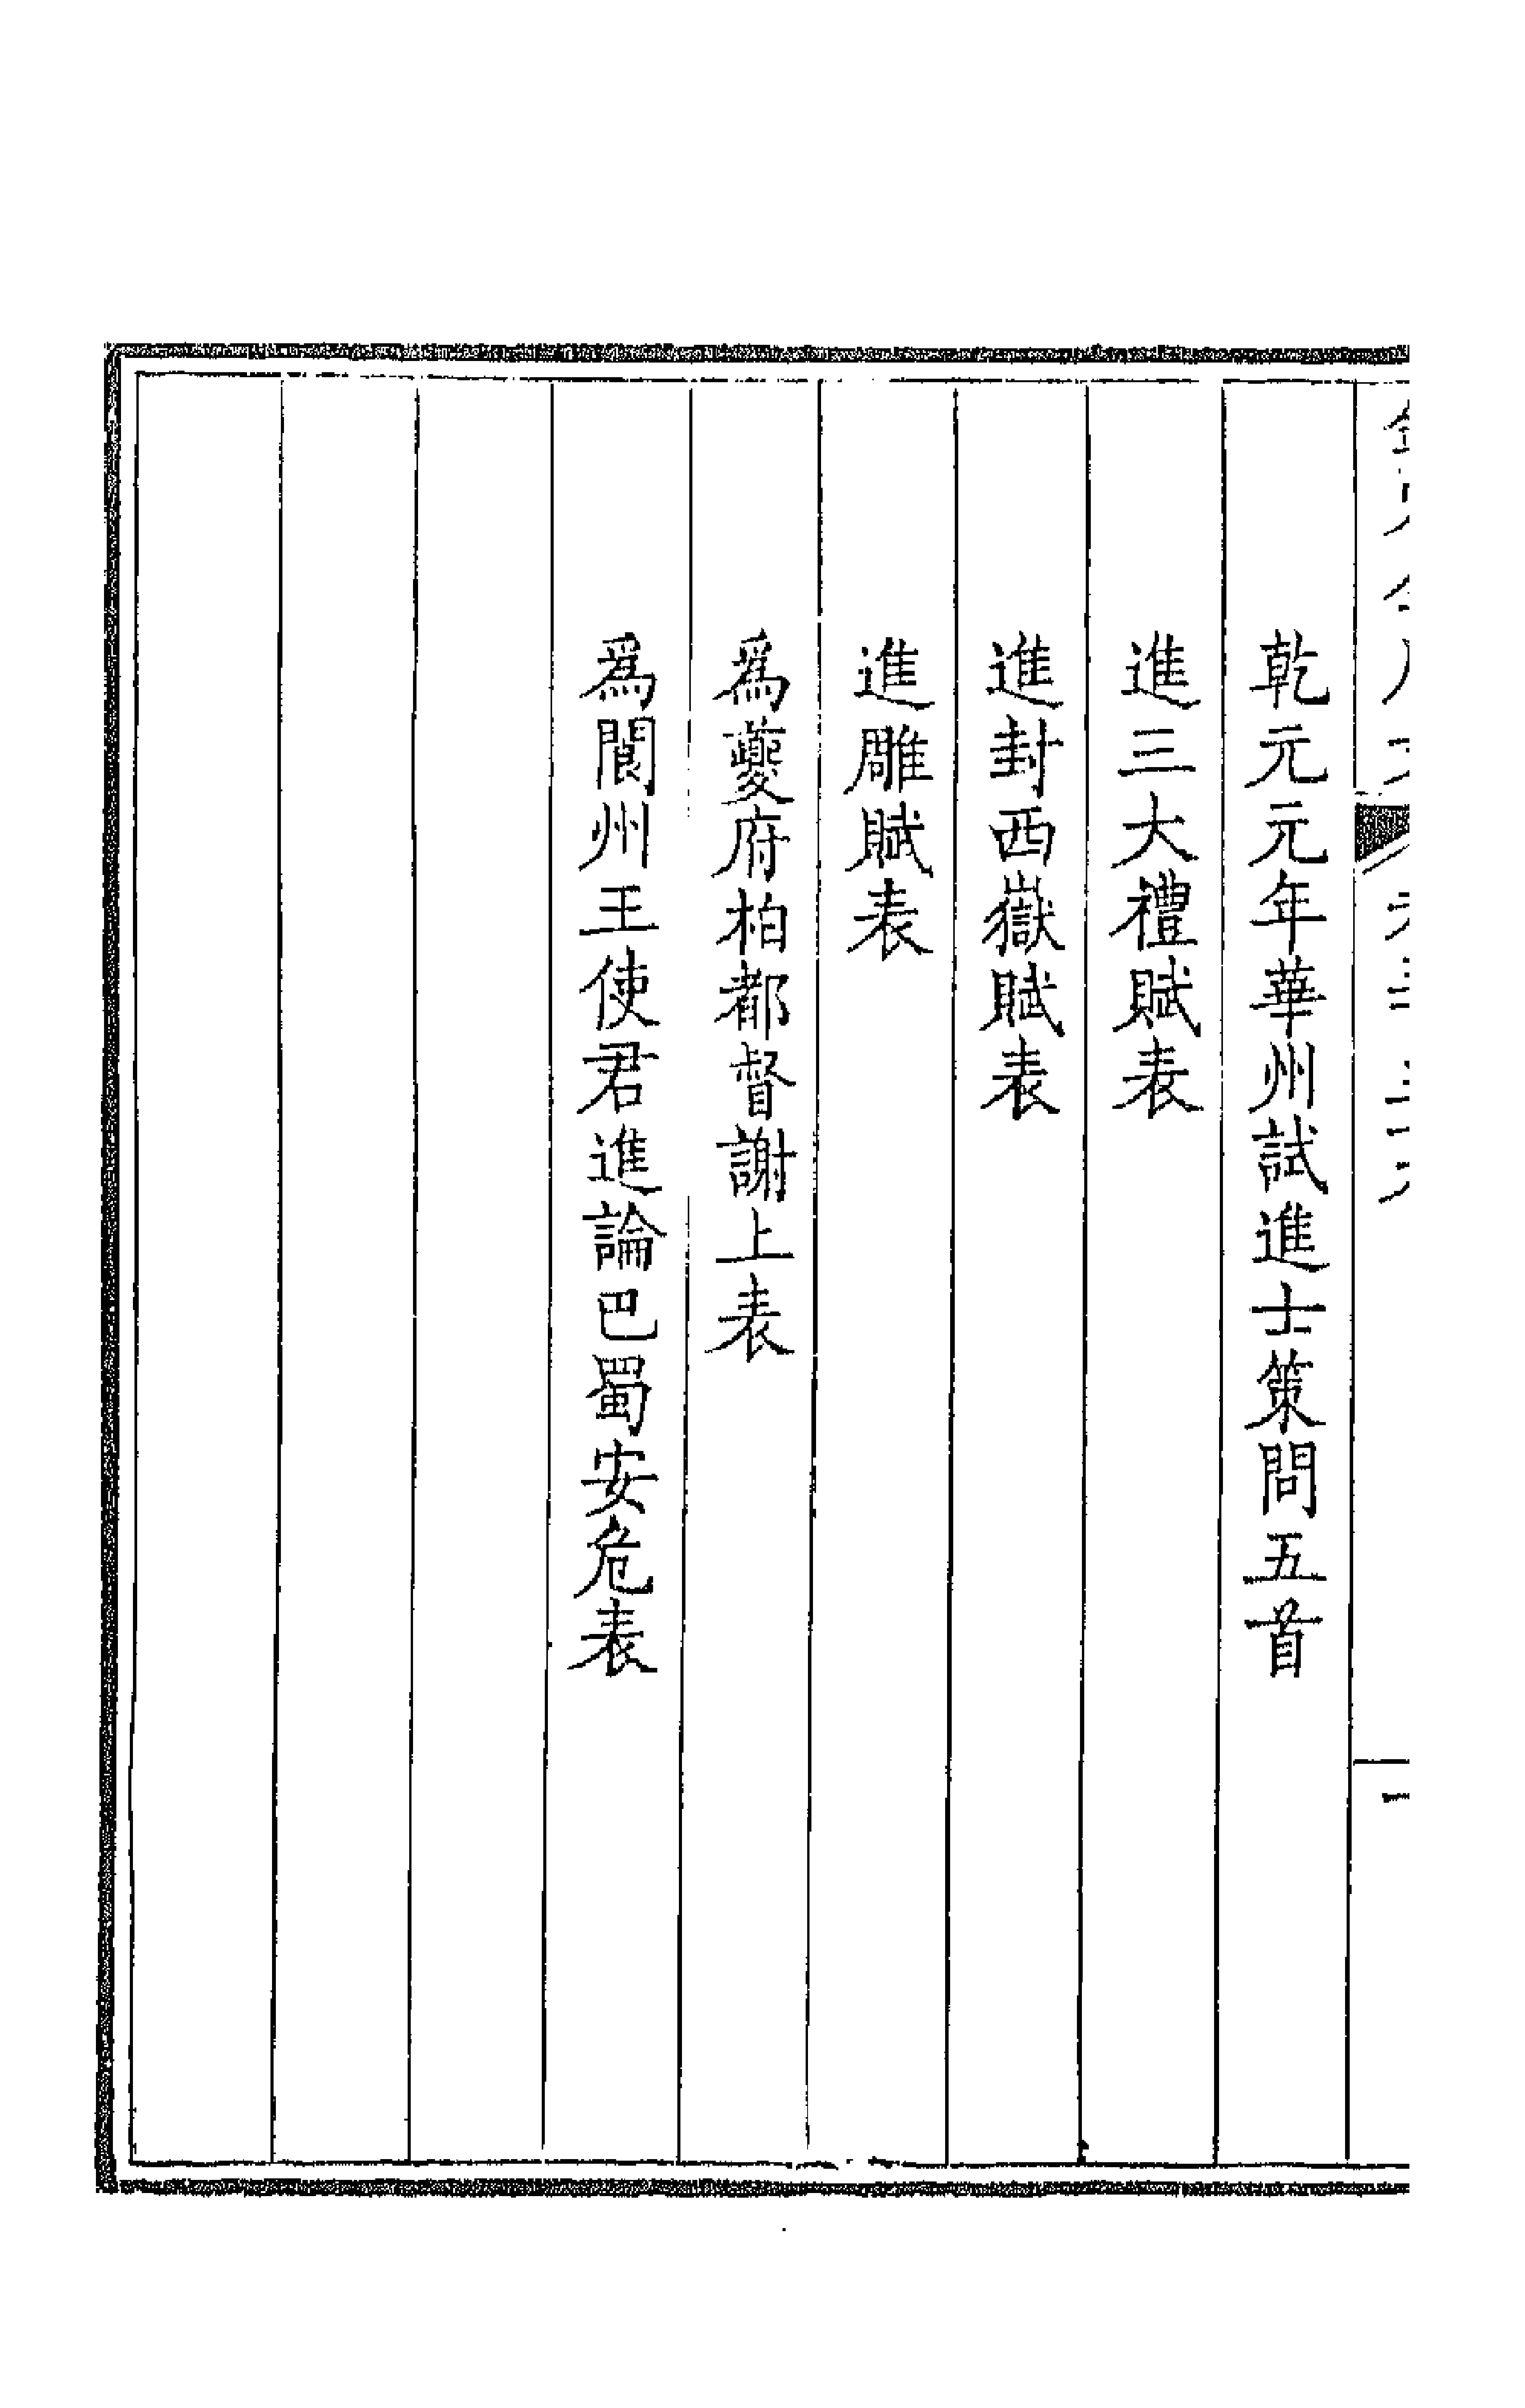 乾元元年華州試進士策問五首
進三大禮賦表
進封西嶽賦表
進雕賦表
爲夔府柏都督謝上表
爲閬州王使君進論巴蜀安危表